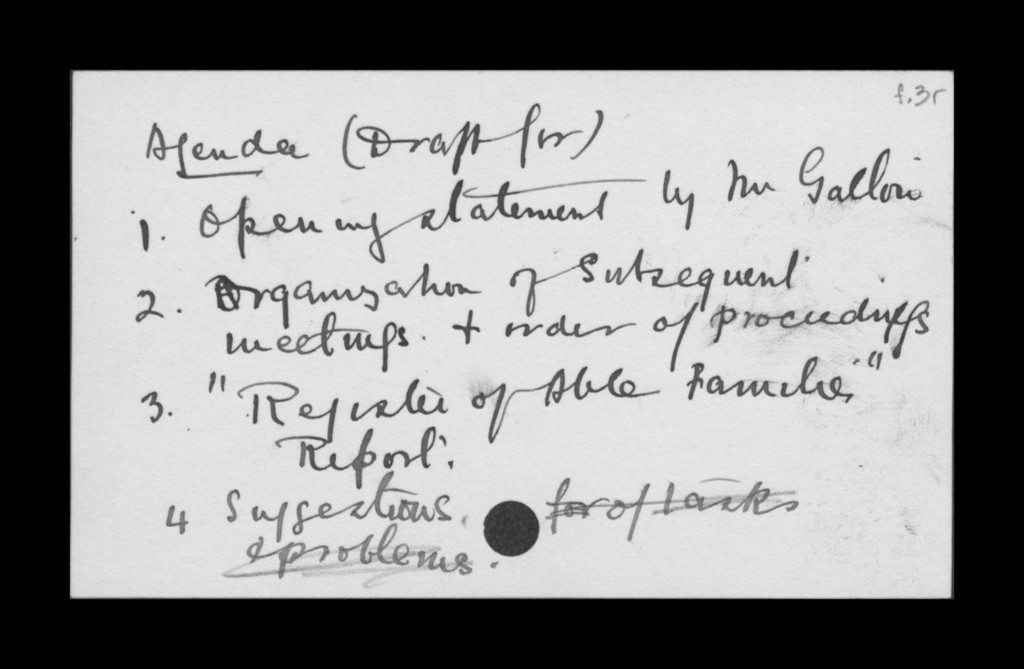 f.3r
Agenda (Draft for)
1. Opening statement by Mr Galton
2. Organisation of Subsequent
meetings. + order of proceedings
3. "Register of Able Families"
Report.
4 Suggestions. for of tasks
& problems.